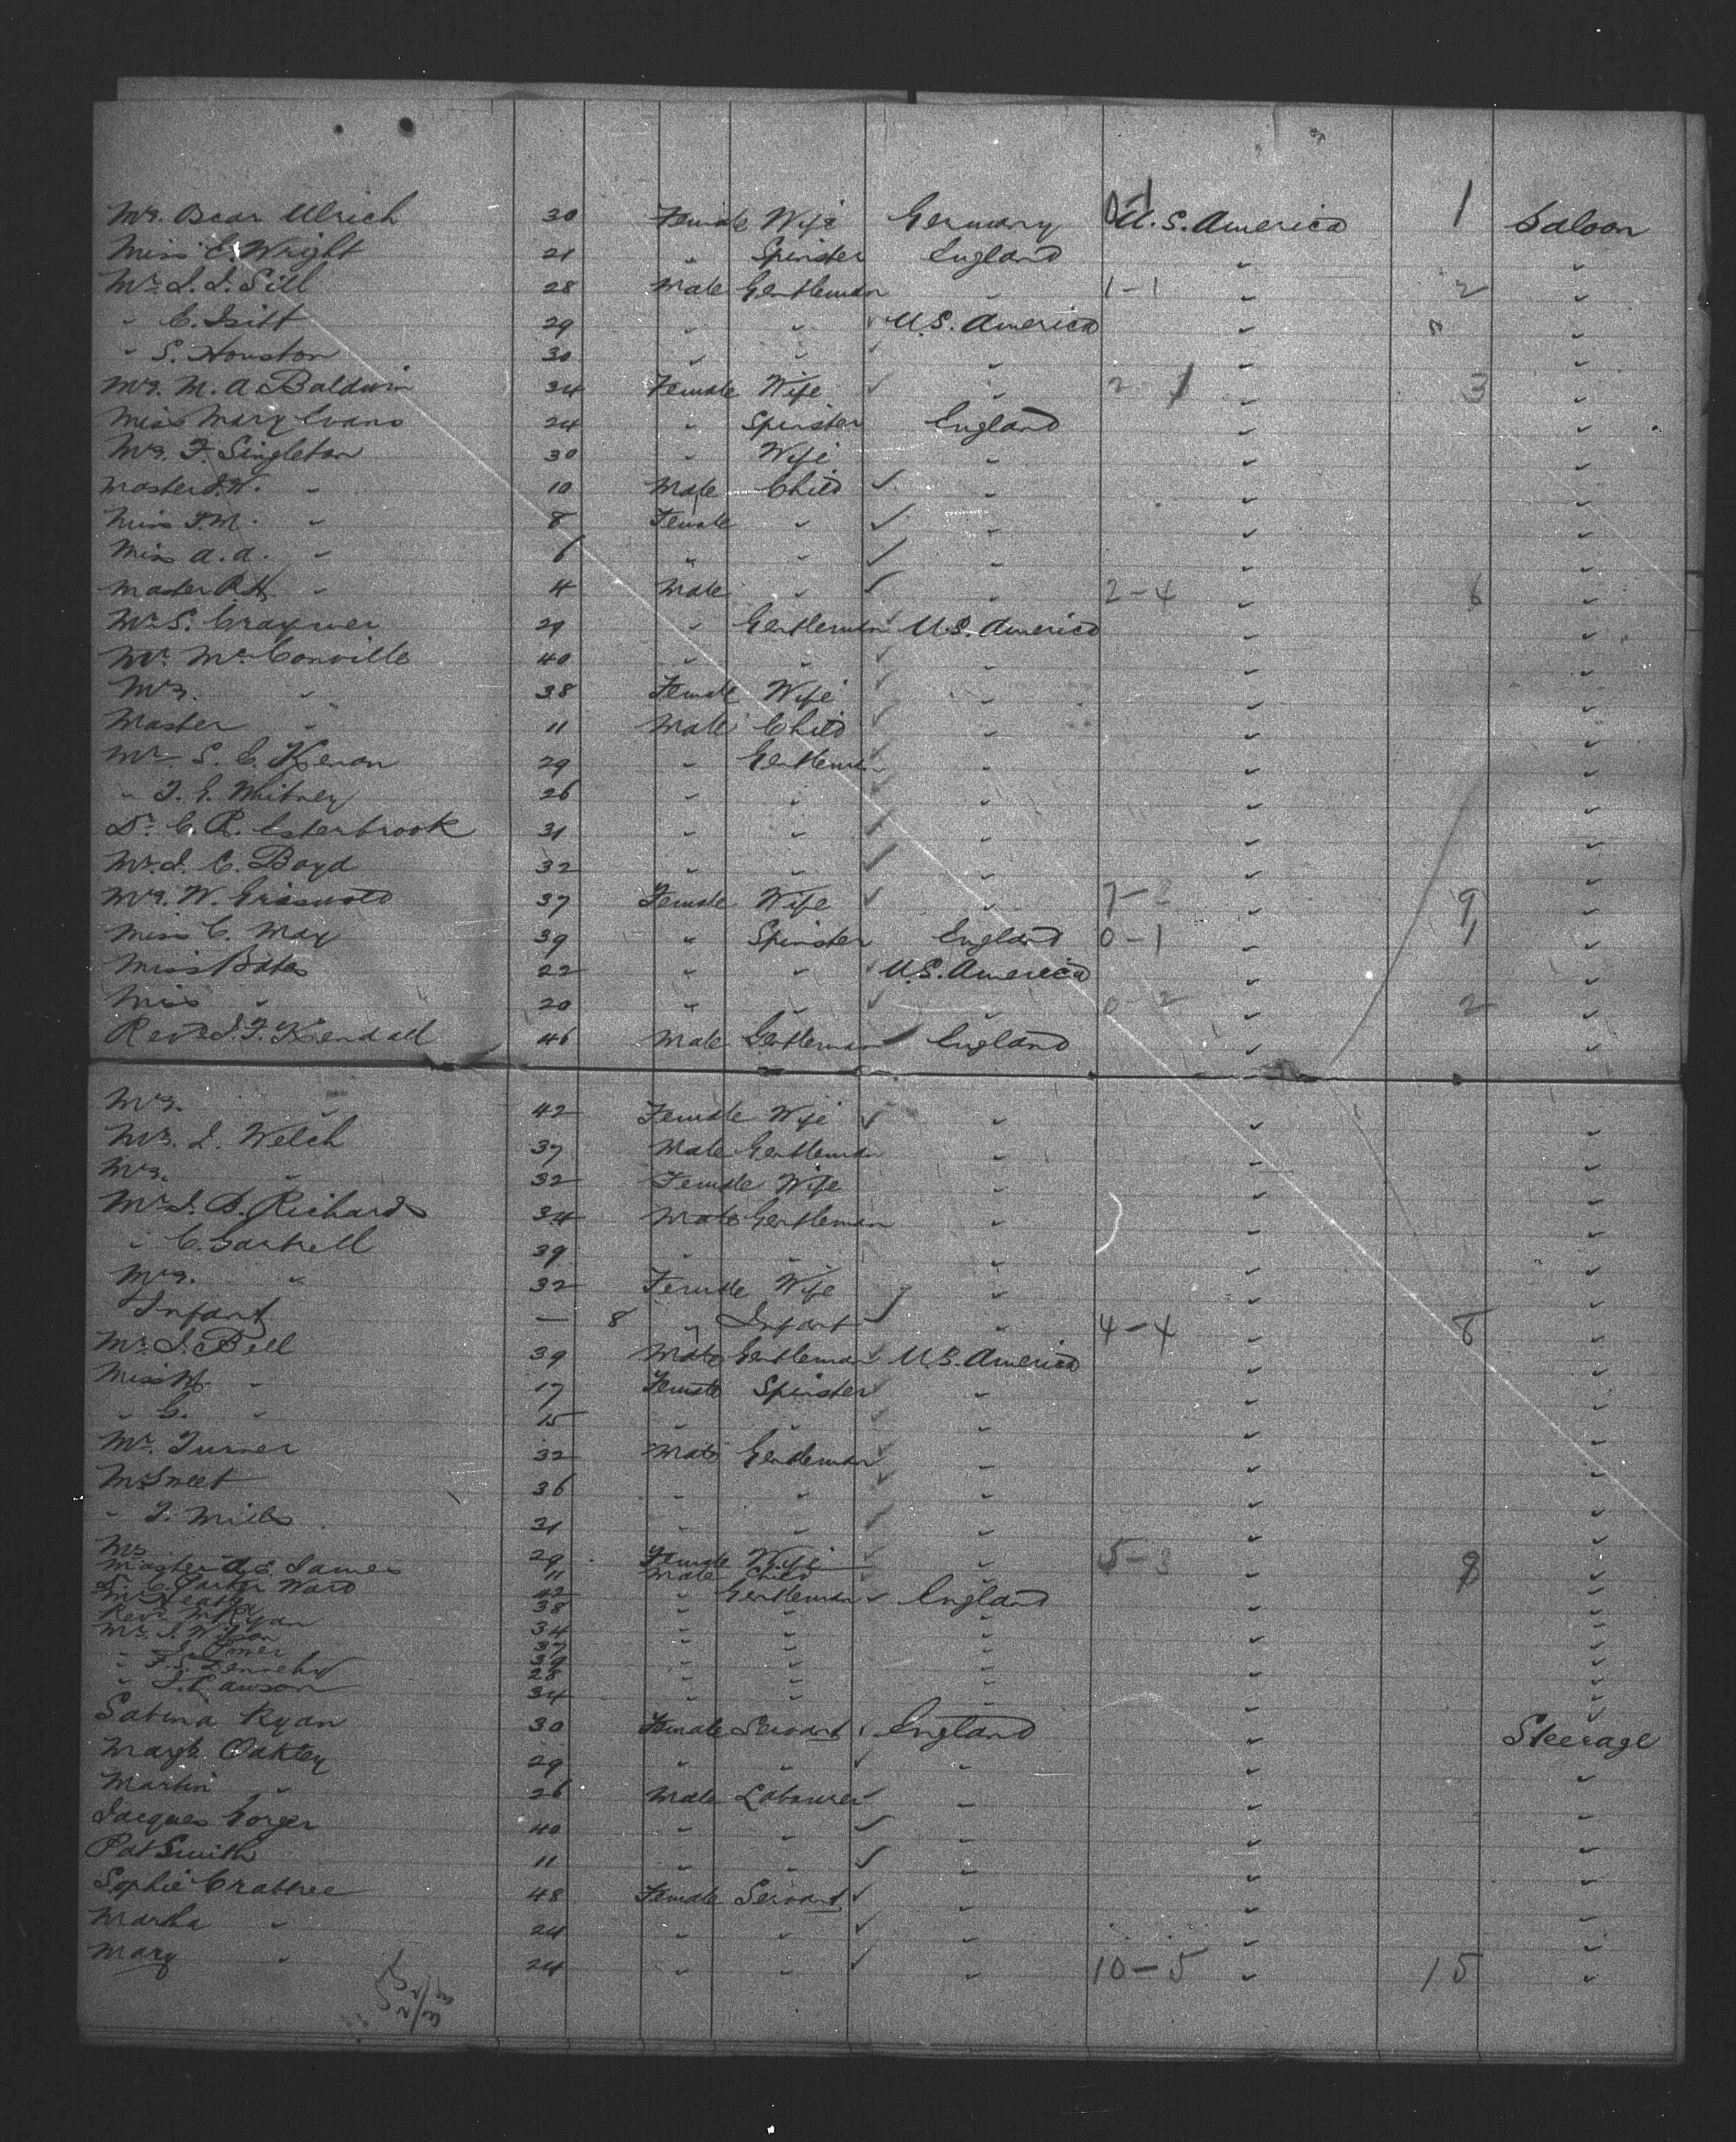 Mrs. Oscar Ulrich 30 Female Wife Germany 0-1 U.S. America 1 Saloon
Miss E. Wright 21 " Spinster England " "
Mr. J. J. Sill 28 Male Gentleman " 1-1 " 2 "
" C. Isitt 29 " " ✓ U.S. America " "
" S. Houston 30 " " ✓ " " "
Mrs. M. A. Baldwin 34 Female Wife ✓ " 2-1 " 3 "
Miss Mary Evans 24 " Spinster England " "
Mrs. F. Singleton 30 " Wife " " "
Master J.W. " 10 Male Child ✓ " " "
Miss F.M. " 8 Female " ✓ " " "
Miss A.A. " 6 " " ✓ " " "
Master R.H. " 4 Male " ✓ " 2-4 " 6 "
Mr. S. 29 " Gentleman ✓ U.S. America " "
Mr. McConville 40 " " ✓ " " "
Mrs. " 38 Female Wife ✓ " " "
Master " 11 Male Child ✓ " " "
Mr. S. C. Kenan 29 " Gentleman ✓ " " "
" F. E. Whitney 26 " " ✓ " " "
Dr. C. R. Esterbrook 31 " " ✓ " " "
Mr. J. C. Boyd 32 " " ✓ " " "
Mrs. W. Griswold 37 Female Wife ✓ " 7-2 " 9 "
Miss C. May 39 " Spinster England 0-1 " 1 "
Miss Bates 22 " " ✓ U.S. America " "
Miss " 20 " " ✓ " 0-2 " 2 "
Revd. J. F. Kendall 46 Male Gentleman ✓ England " "
Mrs. " 42 Female Wife ✓ " " "
Mr. J. Welch 37 Male Gentleman " " "
Mrs. " 32 Female Wife " " "
Mr. J. B. Richards 34 Male Gentleman " " "
" C. Gartrell 39 " " " " "
Mrs. " 32 Female Wife " " "
Infant — 8 " Infant ✓ " 4-4 " 8 "
Mr. J. Bell 39 Male Gentleman ✓ U.S. America " "
Miss M. " 17 Female Spinster ✓ " " "
" G. " 15 " " ✓ " " "
Mr. Turner 32 Male Gentleman ✓ " " "
Mr. Sweet 36 " " ✓ " " "
" F. Mills 31 " " ✓ " " "
Mrs 29 Female Wife ✓ " 5-3 " 8 "
Master A.E. James 11 Male Child " "
Dr. C. Parker Ward 42 " Gentleman ✓ England "
Mr. 38 " " " " "
Revd. M. Ryan 34 " " " "
Mr. J. Wilson 37 " " " "
" J. 39 " " " "
" F. S. Dennehy 28 " " " "
" J. Lawson 34 " " " " "
Sabina Ryan 30 Female Servant ✓ England " Steerage
Margt. Oakley 29 " " ✓ " " "
Martin " 26 Male Labourer ✓ " " "
Jacques Gorger 40 " " ✓ " " "
Pat Smith 11 " " ✓ " " "
Sophie Crabtree 48 Female Servant ✓ " " "
Martha " 24 " " ✓ " " "
Mary " 24 " " ✓ " 10-5 " 15 "